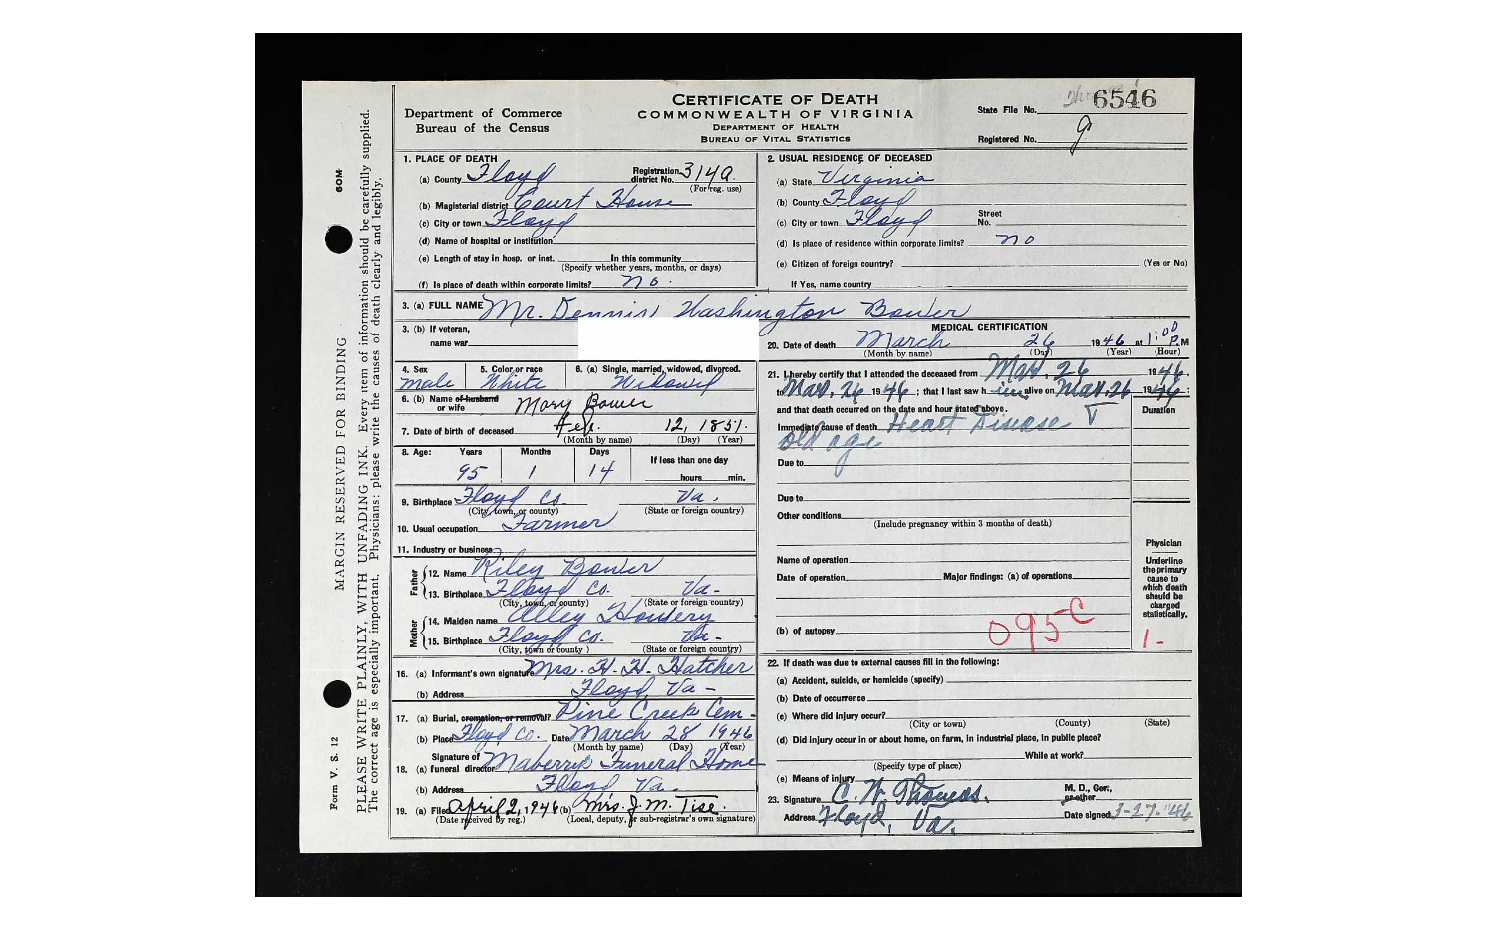 Department of Commerce
Bureau of the Census
CERTIFICATE OF DEATH
COMMONWEALTH OF VIRGINIA
DEPARTMENT OF HEALTH
BUREAU OF VITAL STATISTICS
State File No. 6546
Registered No. 9
MARGIN RESERVED FOR BINDING 60M
PLEASE WRITE PLAINLY, WITH UNFADING INK. Every item of information should be carefully supplied.
The correct age is especially important. Physicians: please write the causes of death clearly and legibly.
Form V. S. 12
1. PLACE OF DEATH
(a) County Floyd Registration district No. 314a
(For reg. use)
(b) Magisterial district Court House
(c) City or town Floyd
(d) Name of hospital or institution
(e) Length of stay in hosp. or inst. In this community
(Specify whether years, months, or days)
(f) Is place of death within corporate limits? no.
2. USUAL RESIDENCE OF DECEASED
(a) State Virginia
(b) County Floyd
(c) City or town Floyd Street No.
(d) Is place of residence within corporate limits? no
(e) Citizen of foreign country? (Yes or No)
If Yes, name country
3. (a) FULL NAME Mr. Dennis Washington Bower
3. (b) If veteran,
name war
4. Sex male 5. Color or race White 6. (a) Single, married, widowed, divorced. Widowed
6. (b) Name of husband or wife Mary Bower
7. Date of birth of deceased Feb. 12, 1851.
(Month by name) (Day) (Year)
8. Age: Years Months Days If less than one day
95 1 14 hours min.
9. Birthplace Floyd Co. Va.
(City, town, or county) (State or foreign country)
10. Usual occupation Farmer
11. Industry or business
Father
12. Name Riley Bower
13. Birthplace Floyd Co. Va-
(City, town, or county) (State or foreign country)
Mother
14. Maiden name Alley Howery
15. Birthplace Floyd Co. Va-
(City, town or county) (State or foreign country)
16. (a) Informant's own signature Mrs. H. H. Hatcher
(b) Address Floyd, Va-
17. (a) Burial, cremation, or removal? Pine Creek Cem-
(b) Place Floyd Co. Date March 28 1946
(Month by name) (Day) (Year)
18. (a) Signature of funeral director Maberry Funeral Home
(b) Address Floyd Va.
19. (a) Filed April 2, 1946 (b) Mrs. J. M. Tise.
(Date received by reg.) (Local, deputy, or sub-registrar's own signature)
MEDICAL CERTIFICATION
20. Date of death March 26 1946 at 1:00 P.M
(Month by name) (Day) (Year) (Hour)
21. I hereby certify that I attended the deceased from Mar. 26 1946.
to Mar. 26 1946; that I last saw him alive on Mar. 26 1946;
and that death occurred on the date and hour stated above. Duration
Immediate cause of death Heart Disease
old age
Due to
Due to
Other conditions
(Include pregnancy within 3 months of death)
Name of operation
Date of operation Major findings: (a) of operations
(b) of autopsy 095c
Physician
Underline
the primary
cause to
which death
should be
charged
statistically.
1-
22. If death was due to external causes fill in the following:
(a) Accident, suicide, or homicide (specify)
(b) Date of occurrence
(c) Where did injury occur?
(City or town) (County) (State)
(d) Did injury occur in or about home, on farm, in industrial place, in public place?
While at work?
(Specify type of place)
(e) Means of injury
23. Signature C. W. Thomas. M. D., Cor., or other
Address Floyd, Va. Date signed 3-27-46